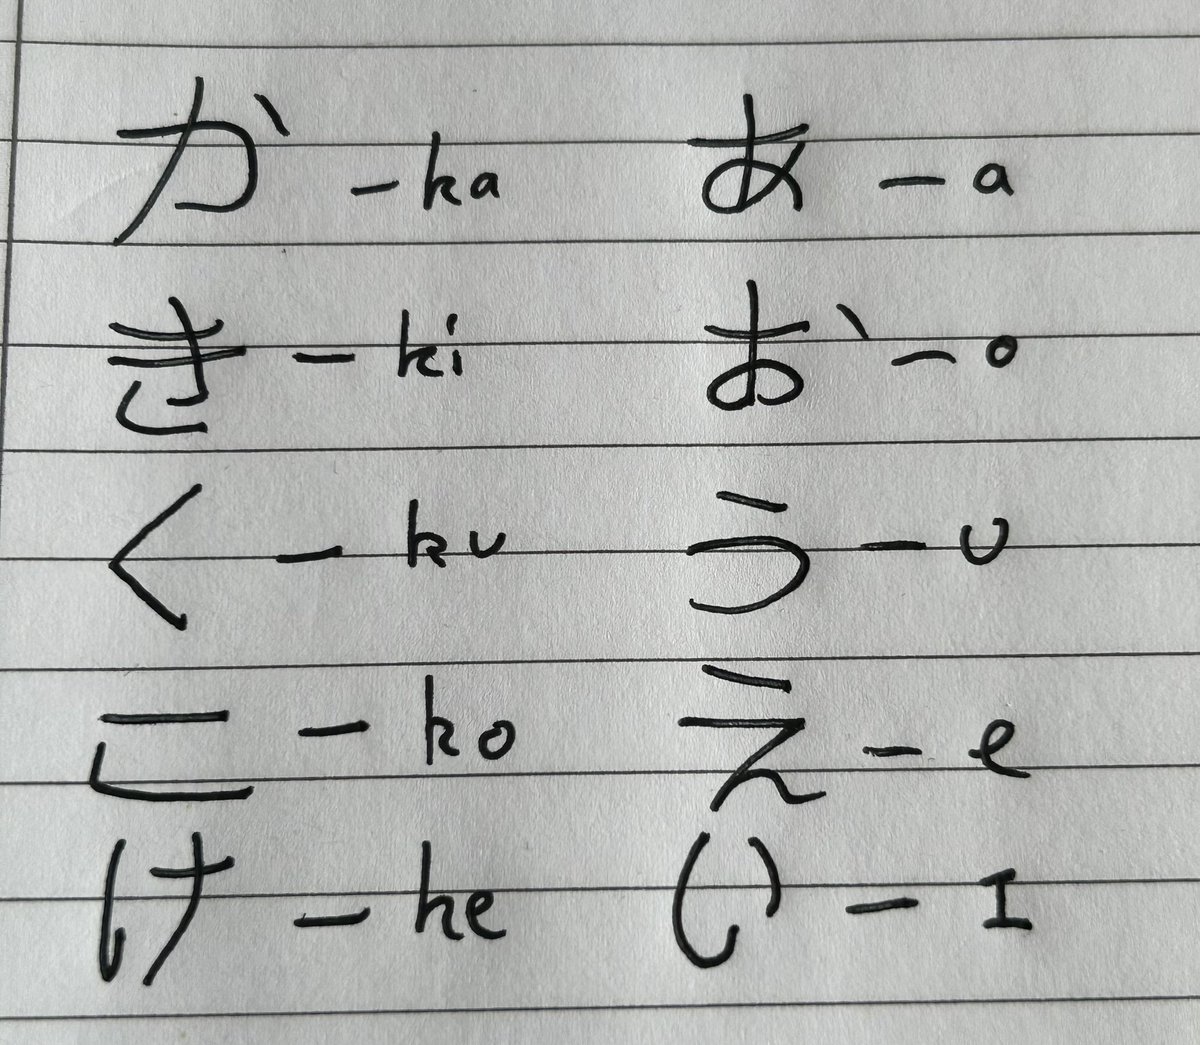 か - ka あ - a
き - ki お - o
く - ku う - u
こ - ko え - e
け - ke い - I